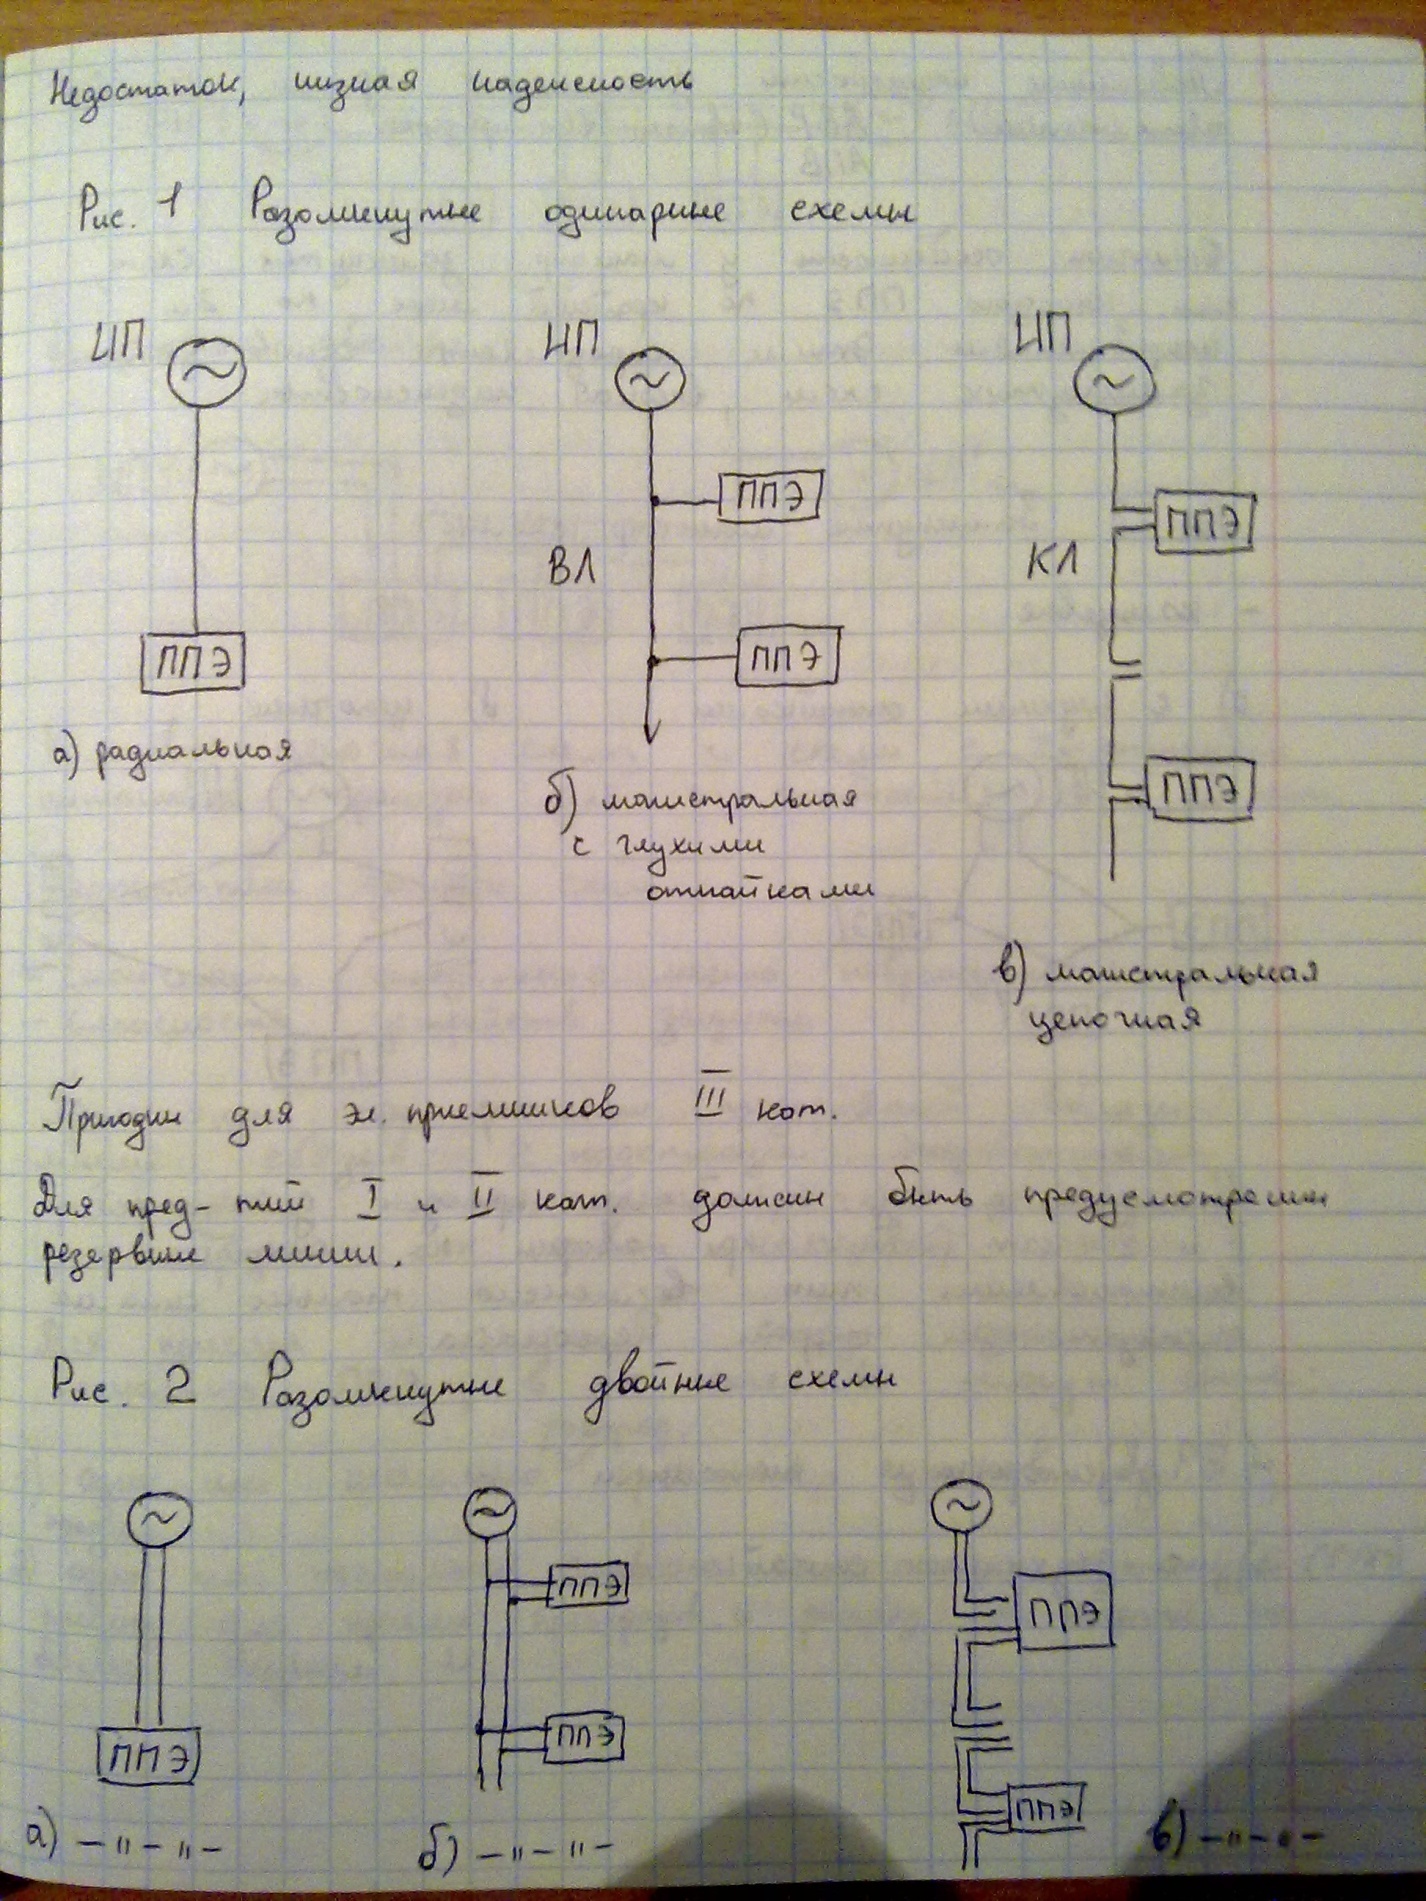 Недостаток, низкая надежность
Рис. 1 Разомкнутые одинарные схемы
ИП
ИП
ИП
ППЭ
ППЭ
ВЛ
КЛ
ППЭ
ППЭ
ППЭ
а) радиальная
б) магистральная
с глухими
отпайками
в) магистральная
цепочная
Пригодны для эл. приемников III кат.
Для пред-тий I и II кат. должны быть предусмотрены
резервные линии.
Рис. 2 Разомкнутые двойные схемы
ППЭ
ППЭ
ППЭ
ППЭ
ППЭ
а) –"–"–
б) –"–"–
в) –"–"–